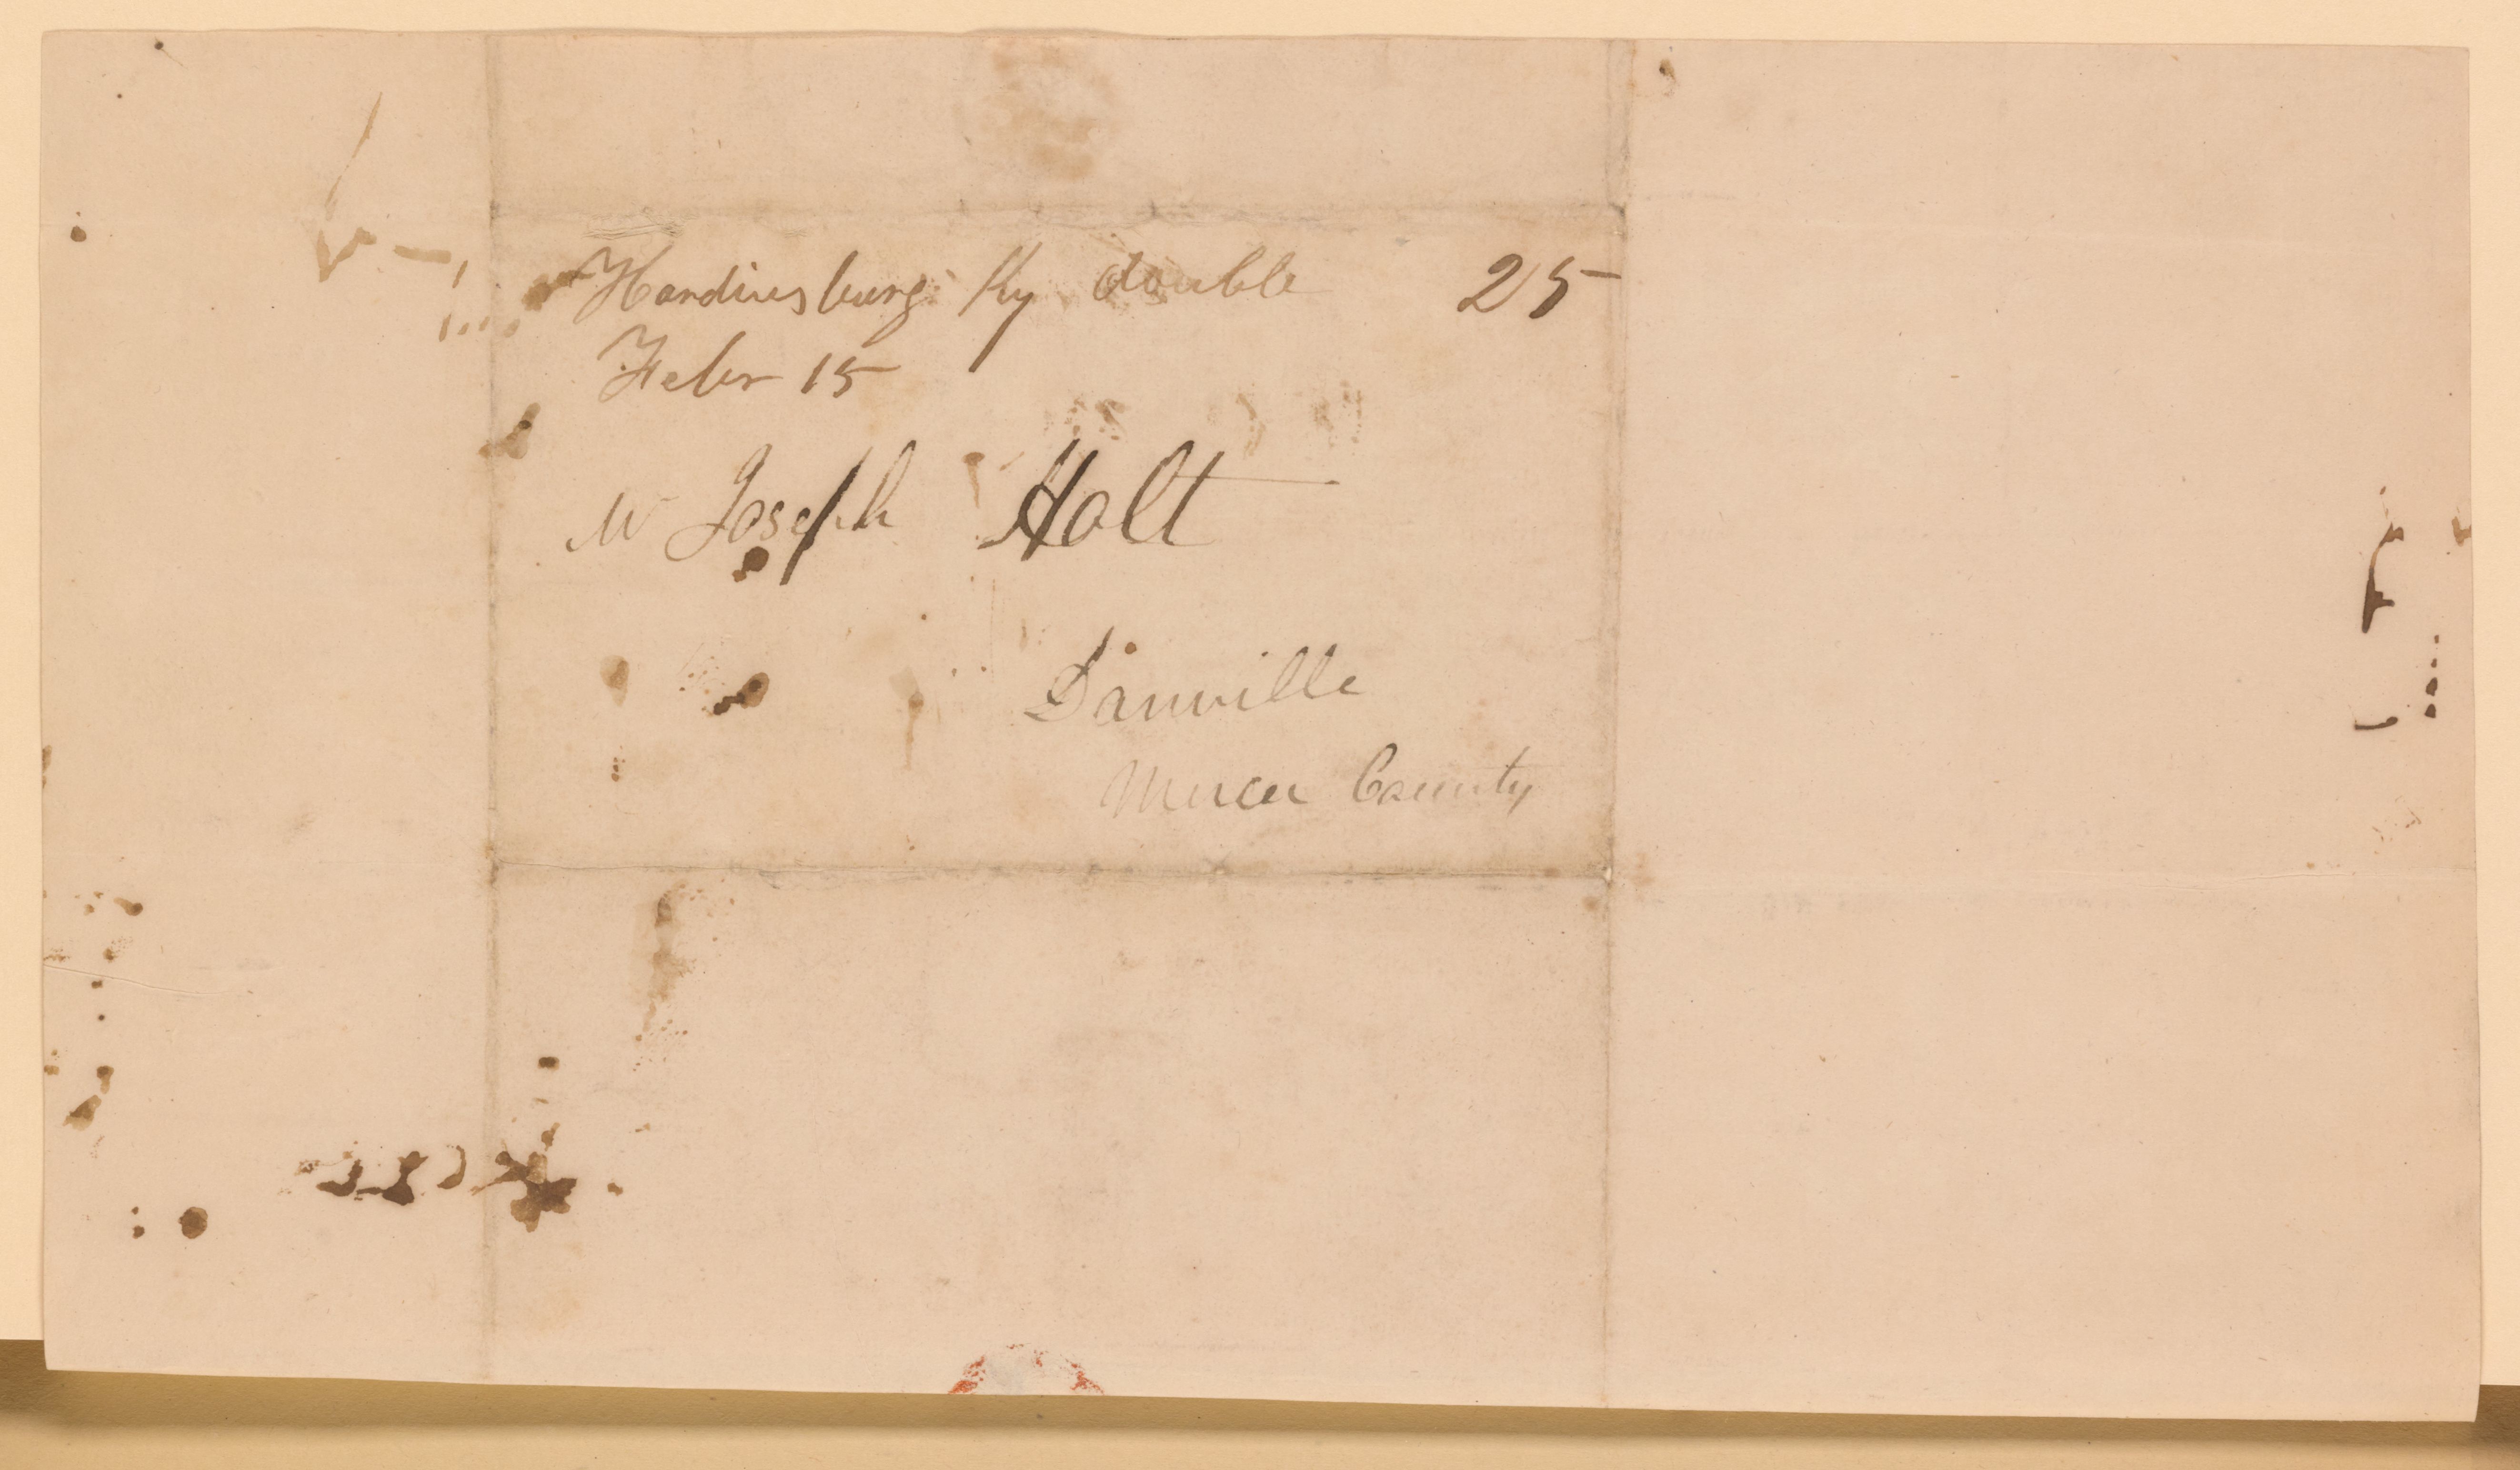 Hardinsburg Ky double 25
Febr 15
Mr Joseph Holt
Danville
Mercer County